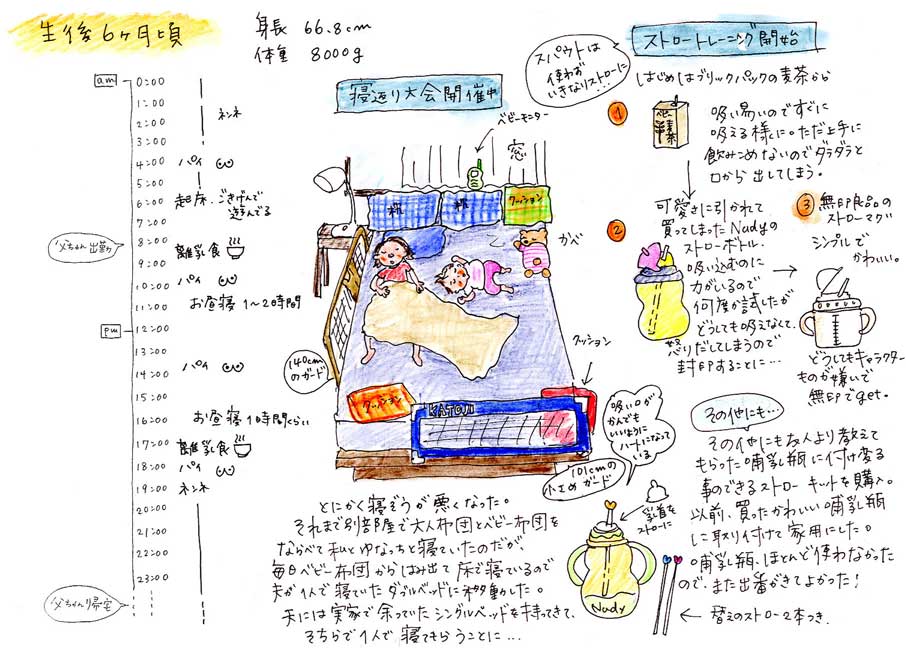 生後6ヶ月頃
身長 66.8cm
体重 8000g
am
0:00
1:00
2:00
ネンネ
3:00
4:00
パイ
5:00
6:00
起床、ごきげんで
遊んでる
7:00
父ちゃん出勤
8:00
離乳食
9:00
10:00
パイ
11:00
お昼寝 1〜2時間
pm
12:00
13:00
14:00
パイ
15:00
16:00
お昼寝 1時間くらい
17:00
離乳食
18:00
パイ
19:00
ネンネ
20:00
21:00
22:00
23:00
父ちゃん帰宅
寝返り大会開催中
ベビーモニター
窓
枕
枕
クッション
かべ
140cm
のガード
クッション
クッション
KATOJI
101cmの
小さめガード
とにかく寝ぞうが悪くなった。
それまで別部屋で大人布団とベビー布団を
ならべて私とゆなっちと寝ていたのだが、
毎日ベビー布団からはみ出て床で寝ているので
夫が1人で寝ていたダブルベッドに移動した。
夫には実家で余っていたシングルベッドを持ってきて、
そちらで1人で寝てもらうことに…
ストロートレーニング開始
スパウトは
使わず
いきなりストローに…
はじめはブリックパックの麦茶から
1
ベビー
麦茶
吸い易いのですぐに
吸える様に。ただ上手に
飲みこめないのでダラダラと
口から出してしまう。
2
可愛さに引かれて
買ってしまったNudyの
ストローボトル。
吸い込むのに
力がいるので
何度か試したが
どうしても吸えなくて、
怒りだしてしまうので
封印することに…
3
無印良品の
ストローマグ
シンプルで
かわいい。
どうしてもキャラクター
ものが嫌いで
無印でget。
その他にも…
その他にも友人より教えて
もらった哺乳瓶に付け変る
事のできるストローキットを購入。
以前、買ったかわいい哺乳瓶
に取り付けて家用にした。
哺乳瓶、ほとんど使わなかった
ので、また出番がきてよかった!
吸い口が
かんでも
いいように
ハートになって
いる
乳首を
ストローに
Nudy
替えのストロー2本つき。